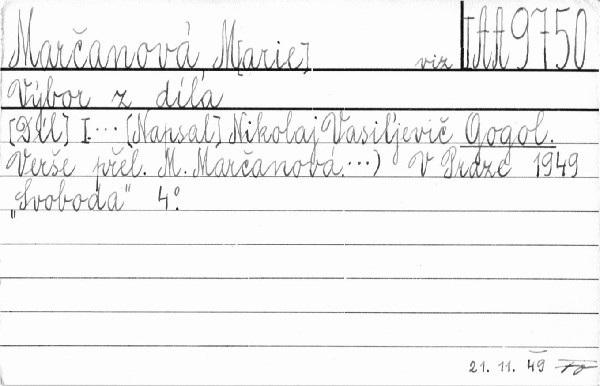 Marčanová M[arie] viz IAA9750
Výbor z díla
[Díl] I... [Napsal] Nikolaj Vasiljevič Gogol.
Verše přel. M. Marčanová...) V Praze 1949
„Svoboda" 4°.
21. 11. 49